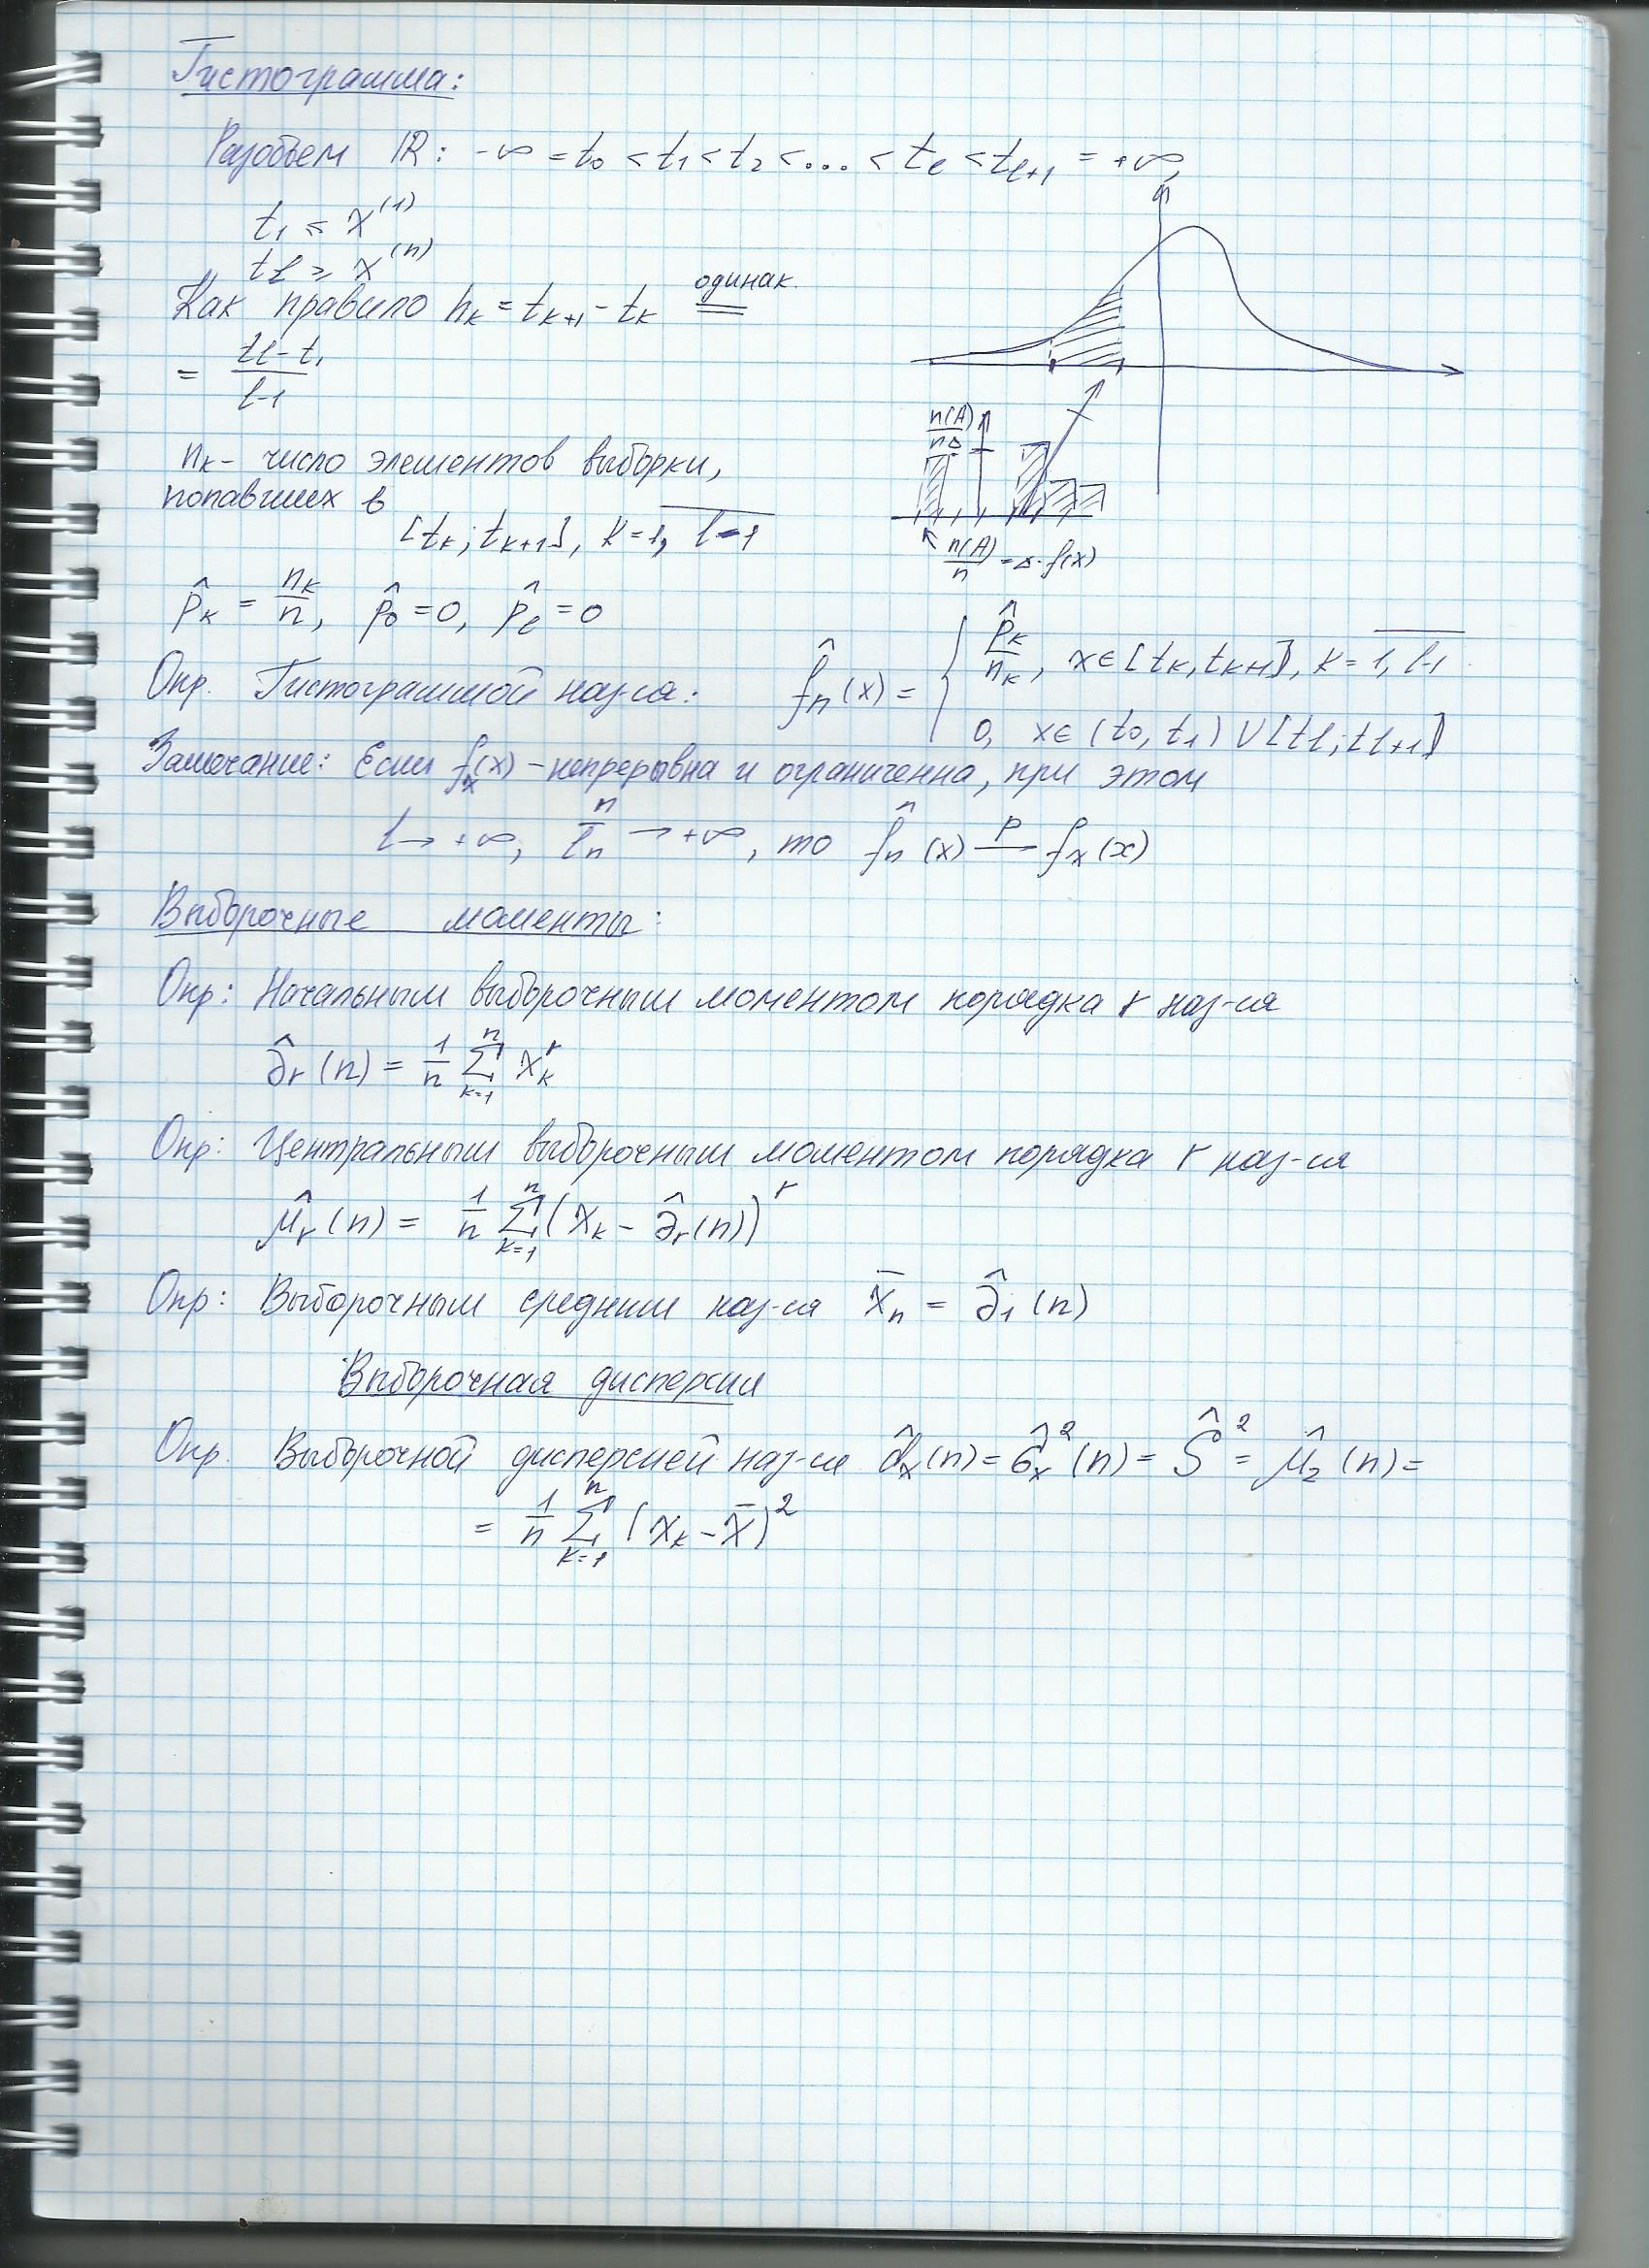 Гистограмма:
Разобьем ℝ: -∞ = t₀ < t₁ < t₂ < ... < t_ℓ < t_{ℓ+1} = +∞,
t₁ ≤ x⁽¹⁾
t_ℓ ≥ x⁽ⁿ⁾
Как правило h_k = t_{k+1} - t_k одинак. =
= (t_ℓ - t₁)/(ℓ-1)
n(A)/(nΔ)
n_k - число элементов выборки,
попавших в
[t_k; t_{k+1}), k = \overline{1, ℓ-1}
n(A)/n = Δ·f(x)
p̂_k = n_k/n, p̂₀ = 0, p̂_ℓ = 0
Опр. Гистограммой наз-ся: f̂_n(x) = { p̂_k/n_k, x∈[t_k, t_{k+1}), k = \overline{1, ℓ-1}
0, x∈(t₀, t₁) ∪ [t_ℓ; t_{ℓ+1})
Замечание: Если f_x(x) - непрерывна и ограниченна, при этом
ℓ → +∞, n/ℓ_n → +∞, то f̂_n(x) —p— f_x(x)
Выборочные моменты:
Опр: Начальным выборочным моментом порядка r наз-ся
∂̂_r(n) = 1/n ∑_{k=1}^{n} x_k^r
Опр: Центральным выборочным моментом порядка r наз-ся
μ̂_r(n) = 1/n ∑_{k=1}^{n} (x_k - ∂̂_r(n))^r
Опр: Выборочным средним наз-ся x̄_n = ∂̂₁(n)
Выборочная дисперсия
Опр. Выборочной дисперсией наз-ся d̂_x(n) = σ̂_x²(n) = Ŝ² = μ̂₂(n) =
= 1/n ∑_{k=1}^{n} (x_k - x̄)²